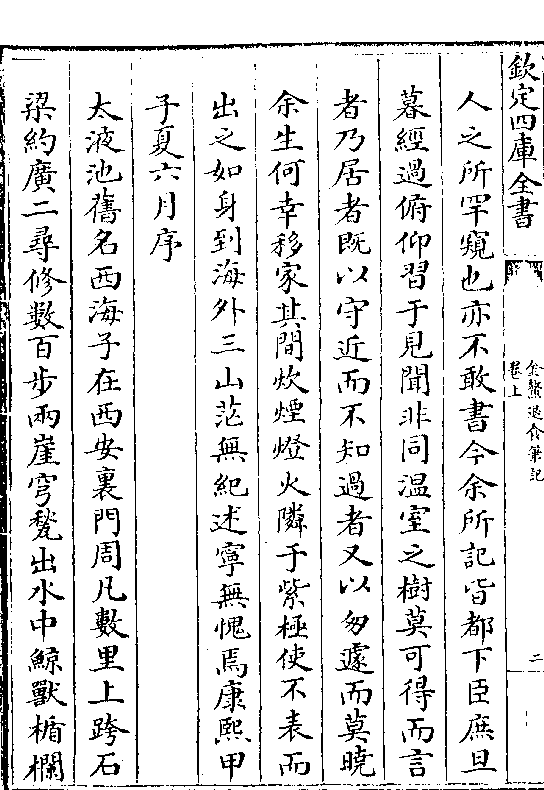 欽定四庫全書
金鰲退食筆記
卷上
二
人之所罕窺也亦不敢書今余所記皆都下臣庶旦
暮經過俯仰習于見聞非同溫室之樹莫可得而言
者乃居者既以守近而不知過者又以匆遽而莫曉
余生何幸移家其間炊煙燈火隣于紫極使不表而
出之如身到海外三山茫無紀述寧無愧焉康熙甲
子夏六月序
太液池舊名西海子在西安裏門周凡數里上跨石
梁約廣二尋修數百步兩崖穹甃出水中鯨獸楯欄